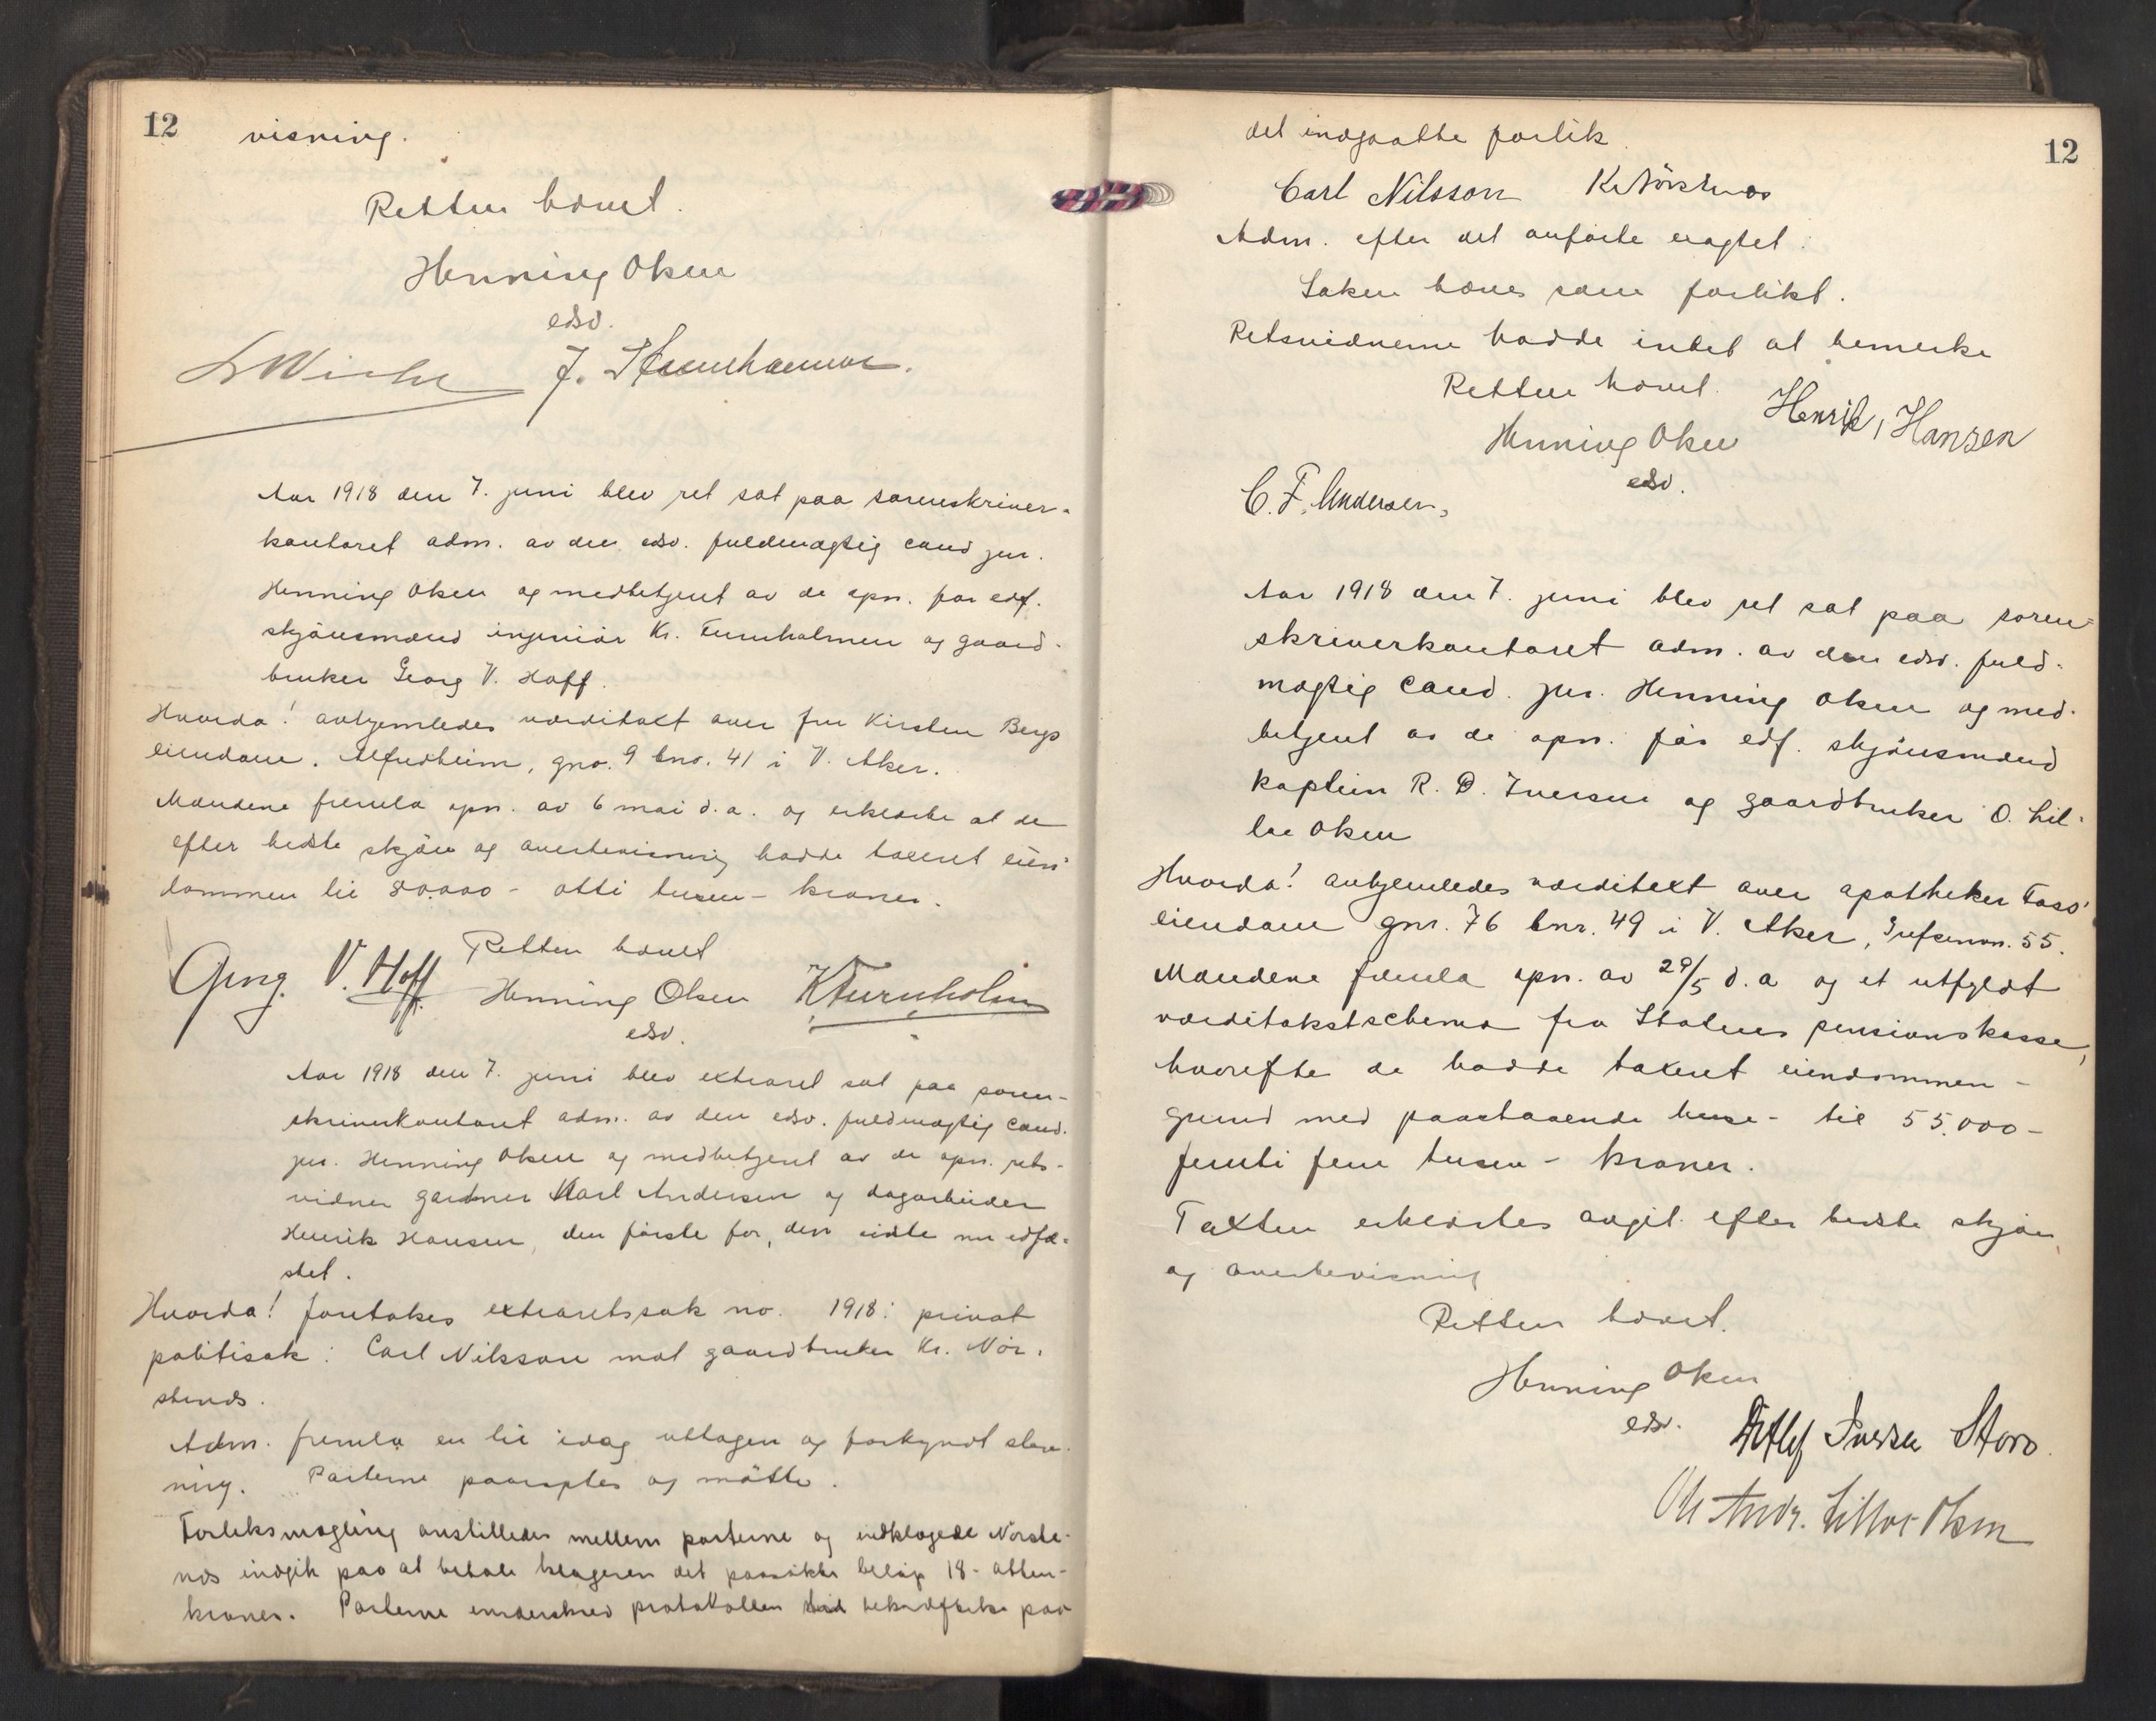 12
visning.
Retten hævet.
Henning Olsen
edsv.
J. Stenhammer.
Aar 1918 den 7. juni blev ret sat paa sorenskriver-
kontoret adm. av den edsv. fuldmægtig cand jur.
Henning Olsen og medbetjent av de opn. før edf.
skjönsmænd ingeniör Kr. Furuholmen og gaard-
bruker Georg V. Hoff.
Hvorda! avhjemledes værditakt over fru Kirsten Bergs
eiendom. Alfredheim, gno. 9 bno. 41 i V. Aker.
Mændene fremla opn. av 6 mai d.a. og erklærte at de
efter bedste skjön og overbevisning hadde taxeret eien-
dommen til 80.000 - otti tusen - kroner.
Retten hævet
Georg. V. Hoff.
Henning Olsen
K Furuholmen
edsv.
Aar 1918 den 7. juni blev extraret sat paa soren-
skriverkontoret adm. av den edsv. fuldmægtig cand.
jur. Henning Olsen og medbetjent av de opn. rets-
vidner gartner Karl Andersen og dagarbeider
Henrik Hansen, den förste før, den sidste nu edfæ-
stet.
Hvorda! foretokes extraretssak no. 1918: privat
politisak: Carl Nilsson mot gaardbruker Kr. Nör-
stenæs.
Adm. fremla en til idag uttagen og forkyndt stev-
ning. Parterne paaroptes og mötte.
Forliksmægling anstilledes mellem parterne og indklagede Nörste-
næs indgik paa at betale klageren det paasökte belöp 18 - atten -
kroner. Parterne underskrev protokollen til bekræftelse paa
12
det indgaatte forlik.
Carl Nilsson K. Nörstenæs
Adm. efter det anförte eragtet:
Saken hæves som forlikt.
Retsvidnerne hadde intet at bemerke
Retten hævet.
Henrik, Hansen
Henning Olsen
edsv.
C. F. Andersen,
Aar 1918 den 7. juni blev ret sat paa soren-
skriverkontoret adm. av den edsv. fuld-
mægtig cand. jur. Henning Olsen og med-
betjent av de opn. för edf. skjönsmænd
kaptein R. D. Iversen og gaardbruker O. Lil-
loe Olsen
Hvorda! avhjemledes værditaxt over apotheker Foss'
eiendom gnr. 76 bnr. 49 i V. Aker, Grefsenvn. 55.
Mændene fremla opn. av 29/5 d.a og et utfyldt
værditakstschema fra Statens pensionskasse,
hvorefter de hadde taxeret eiendommen -
grund med paastaaende huse - til 55.000 -
femti fem tusen - kroner.
Taxten erklærtes avgit efter bedste skjön
og overbevisning
Retten hævet.
Henning Olsen
edsv.
Ditlef Iversen Storo.
Ole Andr. Lilloe-Olsen